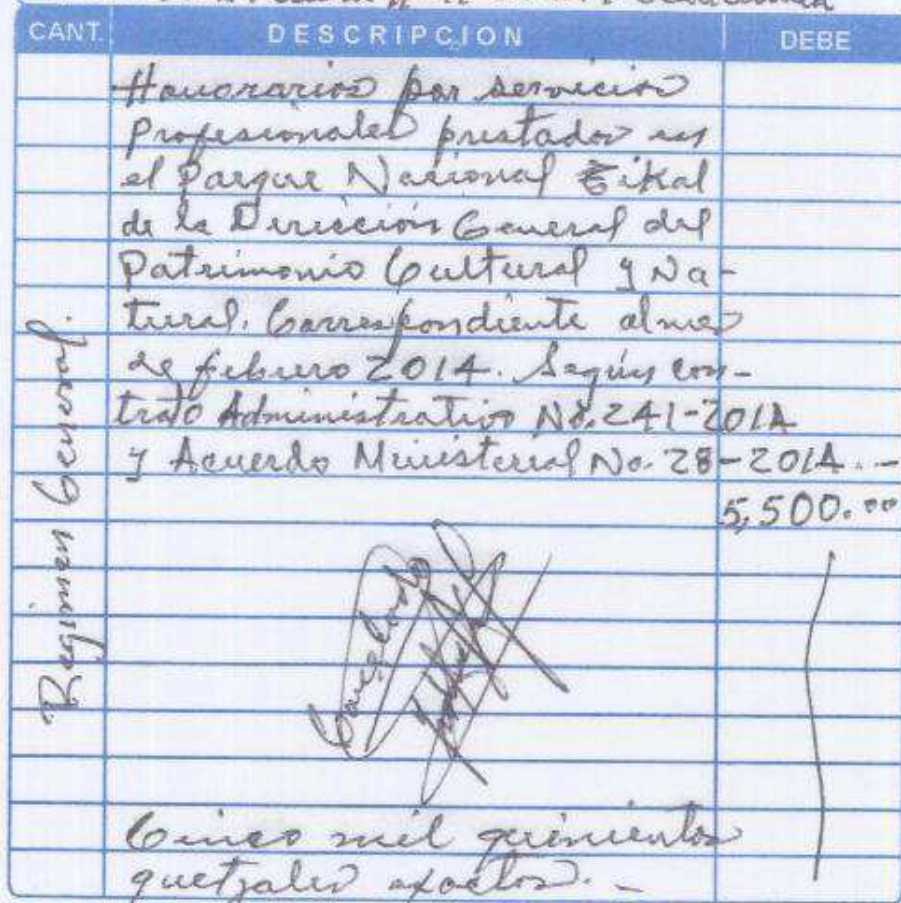 CANT. DESCRIPCION DEBE
Honorarios por servicios
Profesionales prestados en
el Parque Nacional Tikal
de la Dirección General del
Patrimonio Cultural y Na-
tural. Correspondiente al mes
de febrero 2014. Según con-
trato Administrativo No. 241-2014
y Acuerdo Ministerial No. 28-2014.-
5,500.00
Regimen General.
Cancelado
Cinco mil quinientos
quetzales exactos.-